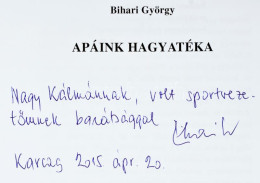 Bihari György
APÁINK HAGYATÉKA
Nagy Kálmánnak, volt sportveze-
tőmnek barátsággal
Karcag 2015 ápr. 20.